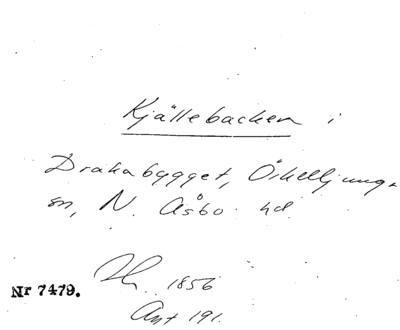 Kjällebacken i
Drakabygget, Örkelljunga
sn, N. Åsbo hd.
Nr 7479.
1856
Ant 191.